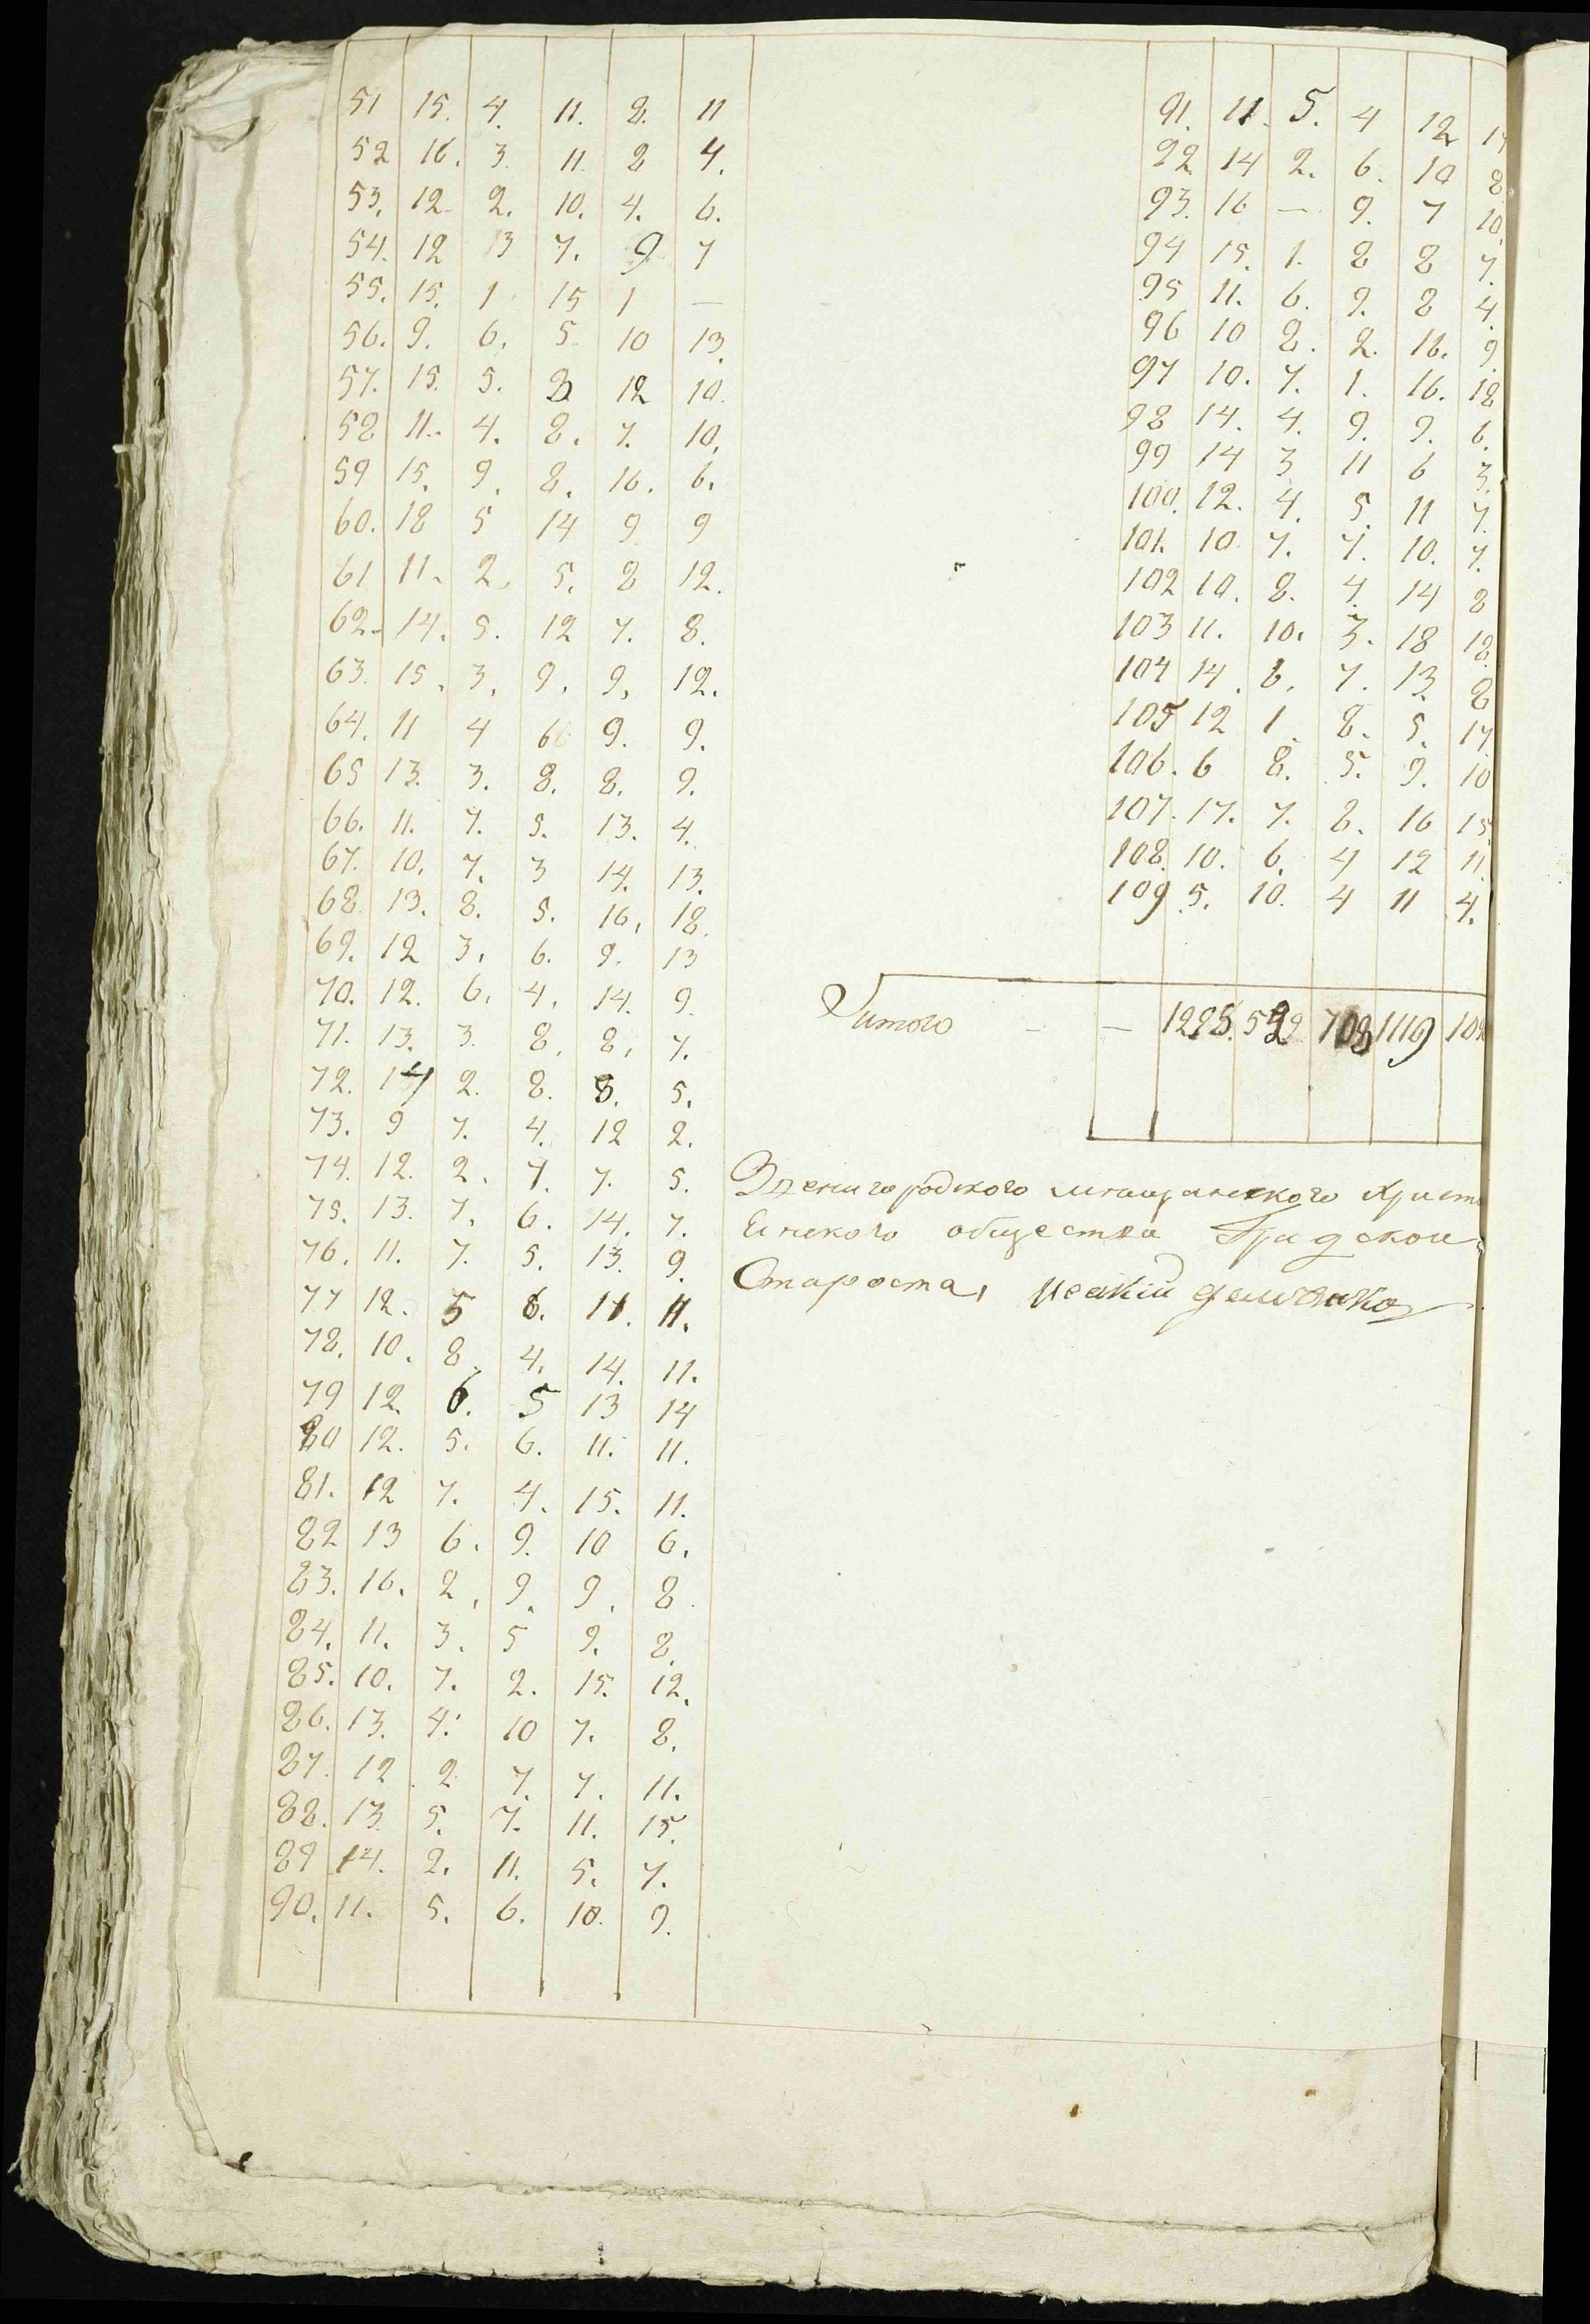 51 15. 4. 11. 8. 11
52 16. 3. 11. 8 4.
53. 12. 2. 10. 4. 6.
54. 12 13 7. 9 7
55. 15. 1 15 1 —
56. 9. 6. 5 10 13.
57. 15. 5. 8 12 10.
58 11. 4. 8. 7. 10.
59 15. 9. 8. 16. 6.
60. 18 5 14 9 9
61 11. 2. 5. 8 12.
62. 14. 5. 12 7. 8.
63. 15. 3. 9. 9. 12.
64. 11 4 6 9. 9.
65 13. 3. 8. 8. 9.
66. 11. 7. 5. 13. 4.
67. 10. 7. 3 14. 13.
68 13. 8. 5. 16. 18.
69. 12 3. 6. 9. 13
70. 12. 6. 4. 14. 9.
71. 13. 3. 8. 8. 7.
72. 14 2. 8. 8. 5.
73. 9 7. 4. 12 2.
74. 12. 2. 7. 7. 5.
75. 13. 7. 6. 14. 7.
76. 11. 7. 5. 13. 9.
77 12. 5 6. 11. 11.
78. 10. 8. 4. 14. 11.
79 12. 6. 5 13 14
80 12. 5. 6. 11. 11.
81. 12 7. 4. 15. 11.
82 13 6. 9. 10 6.
83. 16. 2. 9. 9. 8.
84. 11. 3. 5 9. 8.
85. 10. 7. 2. 15. 12.
86. 13. 4. 10 7. 8.
87. 12 2 7. 7. 11.
88. 13. 5. 7. 11. 15.
89 14. 2. 11. 5. 7.
90. 11. 5. 6. 10. 9.
91. 11. 5. 4 12
92 14 2. 6. 10 8
93. 16 — 9. 7 10.
94 15. 1. 8 8 7.
95 11. 6. 9. 8 4.
96 10 8. 2. 16. 9.
97 10. 7. 1. 16. 18
98 14. 4. 9. 9. 6.
99 14 3 11 6 3.
100. 12. 4. 5. 11 7.
101. 10. 7. 7. 10. 7.
102 10. 8. 4. 14 8
103 11. 10. 3. 18 18.
104 14. 6. 7. 13. 8
105 12 1. 8. 5. 17.
106. 6 8. 5. 9. 10
107. 17. 7. 8. 16 15.
108. 10. 6. 4 12 11.
109 5. 10. 4 11 4.
Итого — — 1225. 529 708 1119
Звенигородского мещанского Христ
Еинского общества Градской
Староста,